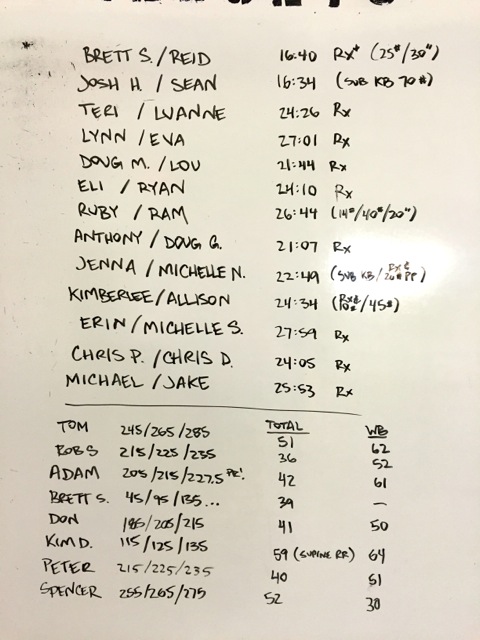 BRETT S. / REID 16:40 Rx* (25#/30")
JOSH H. / SEAN 16:34 (SUB KB 70#)
TERI / LUANNE 24:26 Rx
LYNN / EVA 27:01 Rx
DOUG M. / LOU 21:44 Rx
ELI / RYAN 24:10 Rx
RUBY / RAM 26:44 (14#/40#/20")
ANTHONY / DOUG G. 21:07 Rx
JENNA / MICHELLE N. 22:49 (SUB KB / PP)
KIMBERLEE / ALLISON 24:34 (/45#)
ERIN / MICHELLE S. 27:59 Rx
CHRIS P. / CHRIS D. 24:05 Rx
MICHAEL / JAKE 25:53 Rx
TOTAL WB
TOM 245/265/285 51 62
ROB S 215/225/235 36 52
ADAM 205/215/227.5 PR! 42 61
BRETT S. 45/95/135... 39 —
DON 185/205/215 41 50
KIM D. 115/125/135 59 (SUPINE RR) 64
PETER 215/225/235 40 51
SPENCER 255/265/275 52 30